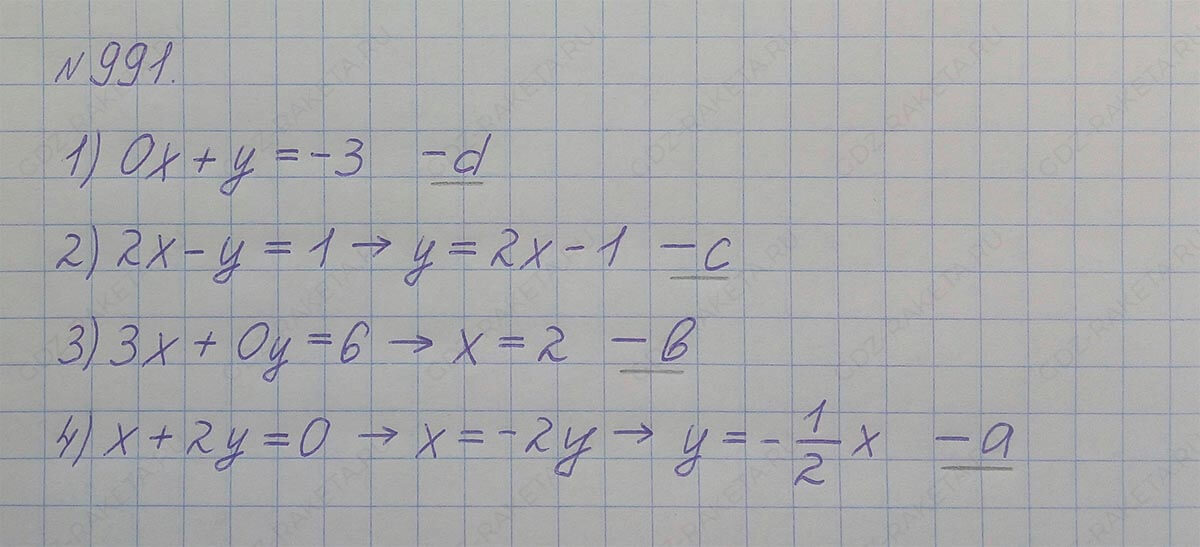 №991.
1) 0x + y = -3 - d
2) 2x - y = 1 → y = 2x - 1 - c
3) 3x + 0y = 6 → x = 2 - в
4) x + 2y = 0 → x = -2y → y = - 1/2 x - a
GDZ-RAKETA.RU